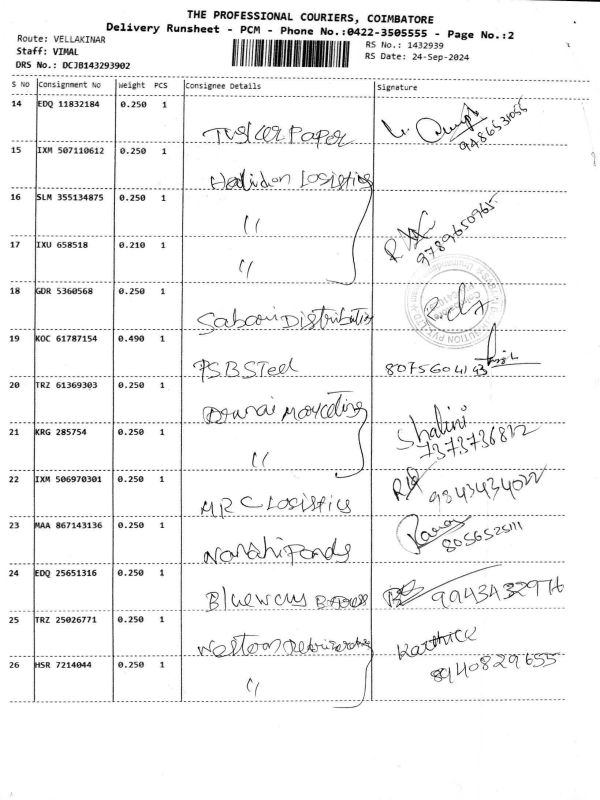 THE PROFESSIONAL COURIERS, COIMBATORE
Delivery Runsheet - PCM - Phone No.:0422-3505555 - Page No.:2
Route: VELLAKINAR
RS No.: 1432939
Staff: VIMAL
RS Date: 24-Sep-2024
DRS No.: DCJB143293902
S No Consignment No Weight PCS Consignee Details Signature
14 EDQ 11832184 0.250 1
Paper 9486531055
15 IXM 507110612 0.250 1
Logistics
16 SLM 355134875 0.250 1
〃 9789650965
17 IXU 658518 0.210 1
〃
18 GDR 5360568 0.250 1
Sabari Distribution
19 KOC 61787154 0.490 1
PSB Steel 8075604193
20 TRZ 61369303 0.250 1
21 KRG 285754 0.250 1
Shalini
〃 7373736812
22 IXM 506970301 0.250 1
MRC Logistics 9343434022
23 MAA 867143136 0.250 1
8056525111
24 EDQ 25651316 0.250 1
9943432976
25 TRZ 25026771 0.250 1
Western
Karthick
26 HSR 7214044 0.250 1
〃 8940829655